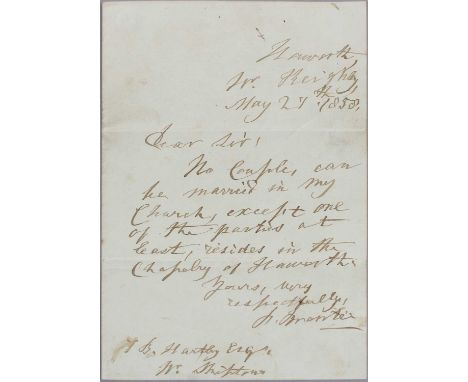 Haworth,
Nr. Keighley
May 27th 1858,
Dear Sir;
No Couple, can
be married in my
Church, except one
of the parties at
least, resides in the
Chapelry of Haworth.
Yours, very
respectfully,
P. Brontë
Hartley Esqr.
Nr. Skipton